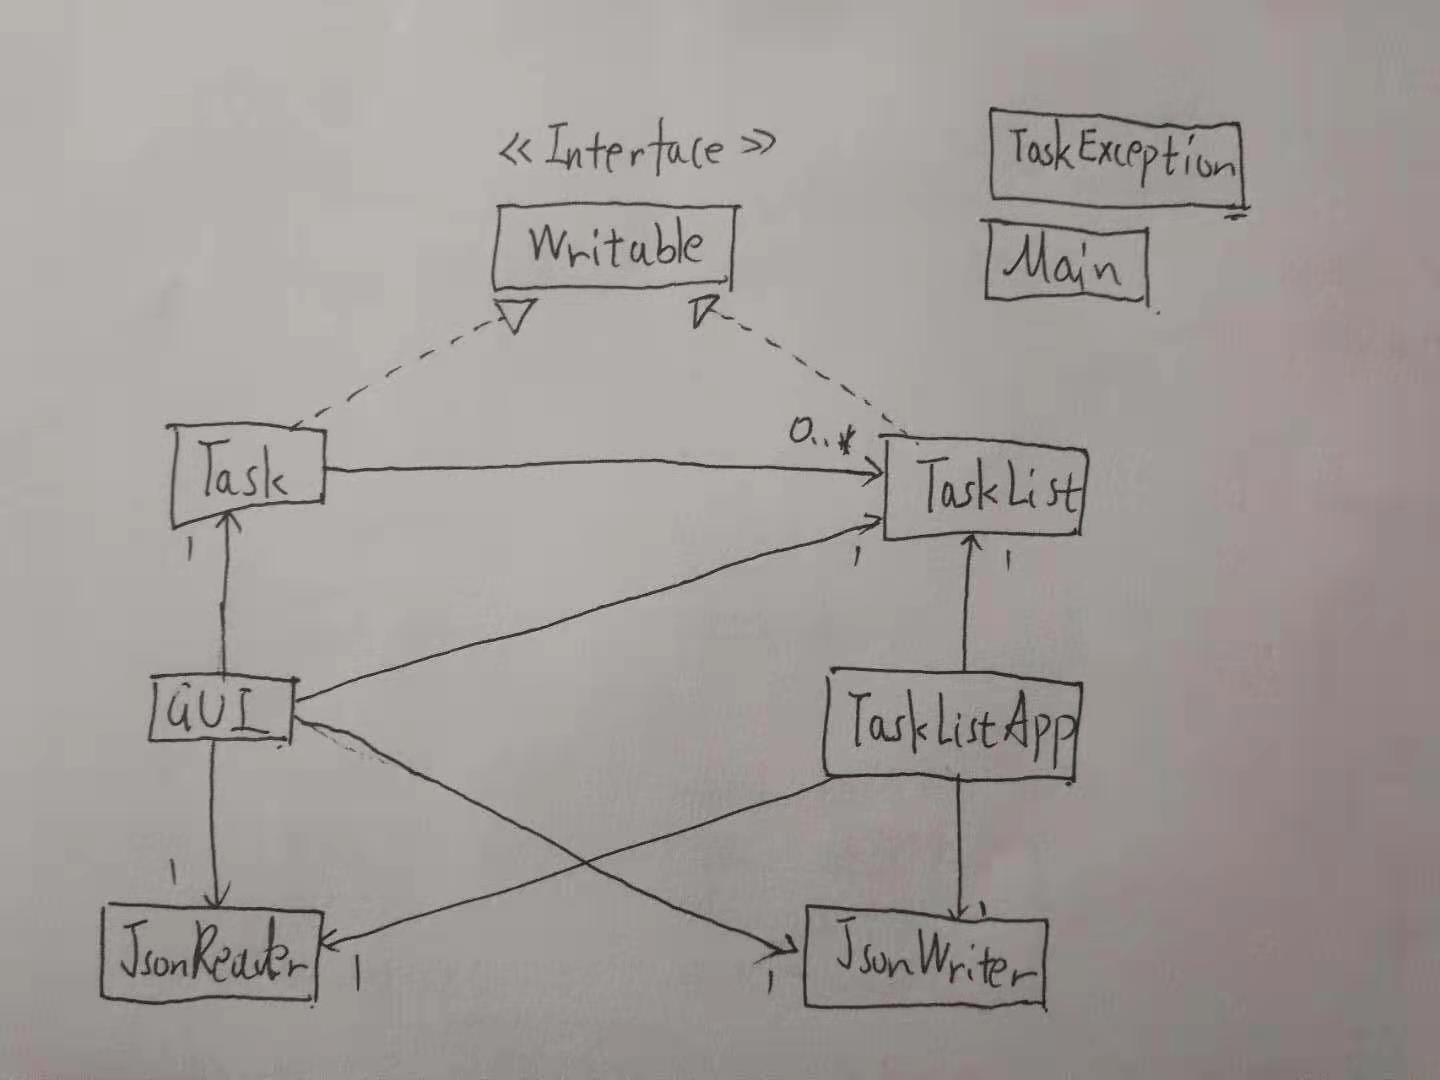 << Interface >>
Writable
TaskException
Main
Task
0..*
TaskList
1
1
1
GUI
TaskListApp
1
1
JsonReader
1
1
JsonWriter